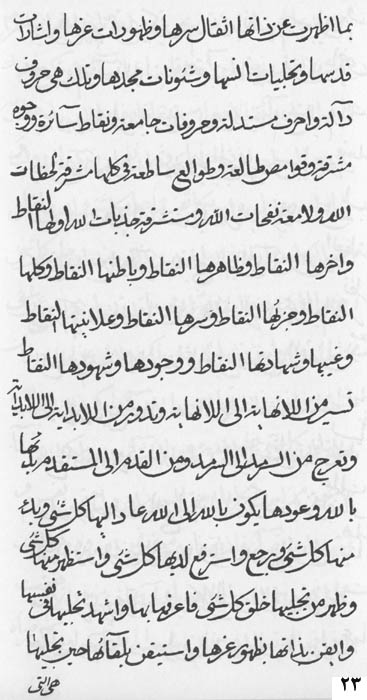 بما اظهرت عن ذاتها اثقال سرها وظهورات عزها واشارات
قدسها وتجليات انسها وشئونات مجدها وتلك هي حروف
دآلة واحرف مستدلة وحروفات جامعة ونقاط سآئرة ووجوه
مشرقة وقوامص طالعة وطوالع ساطعة في كلها مشرقة لحظات
الله ولامعة نفحات الله ومستشرقة جذبات الله اولها النقاط
واخرها النقاط وظاهرها النقاط وباطنها النقاط وكلها
النقاط وجزئها النقاط وسرها النقاط وعلانيتها النقاط
وغيبها وشهادتها النقاط ووجودها وشهودها النقاط
تسير من اللانهاية الى اللانهاية وتدور من اللابداية الى اللابداية
وتعرج من السرمد الى السرمد ومن القدم الى المستقدم بدئها
بالله وعودها يكون بالله الى الله عاد اليها كل شئ وبدء
منها كل شئ ويرجع واسترفع لديها كل شئ واستظهر منها كل شئ
وظهر من تجليها خلق كل شئ فاعرفها بها واشهد تجليها في نفسها
وايقن بذاتها بظهور عزها واستيقن بلقآئها حين تجليها
هي التي
٢٣